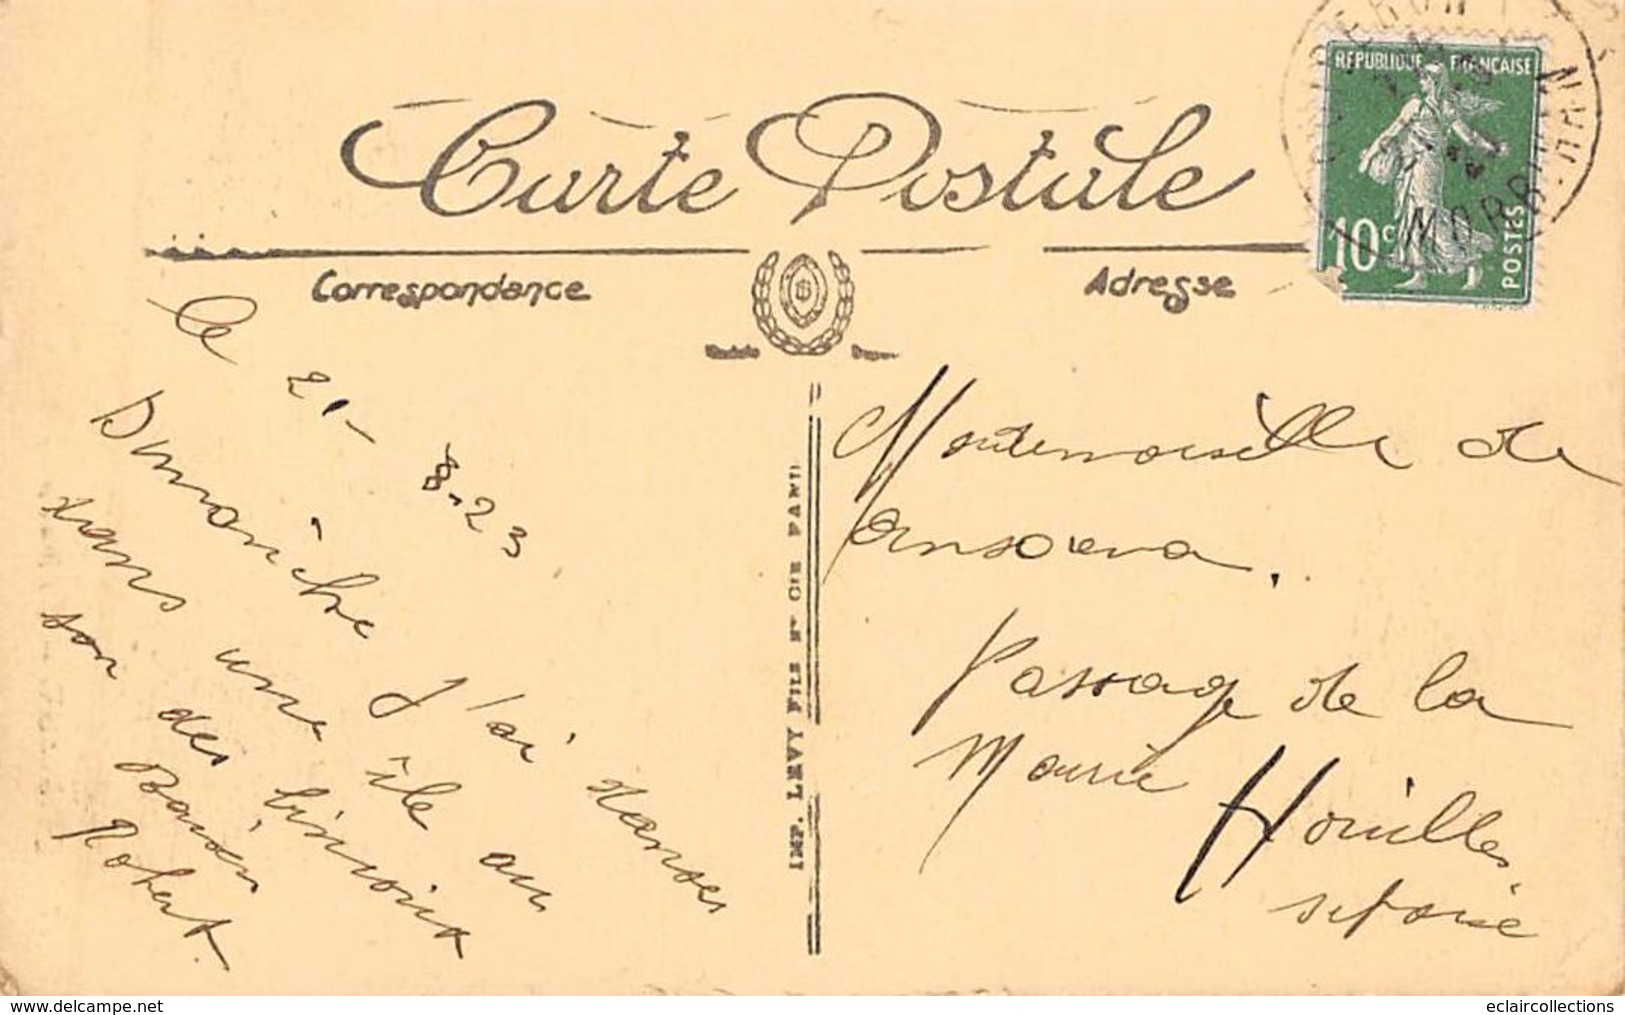 Carte Postale
RÉPUBLIQUE FRANÇAISE
10c
POSTES
MORBIHAN
Correspondance
Adresse
IMP. LEVY FILS ET CIE PARIS
le 21-8-23
Dimanche j'ai danser
dans une île au
son des biniout
Baisers
Robert
Mademoiselle de
Passage de la
Mairie
Houilles
set oise
www.delcampe.net
eclaircollections